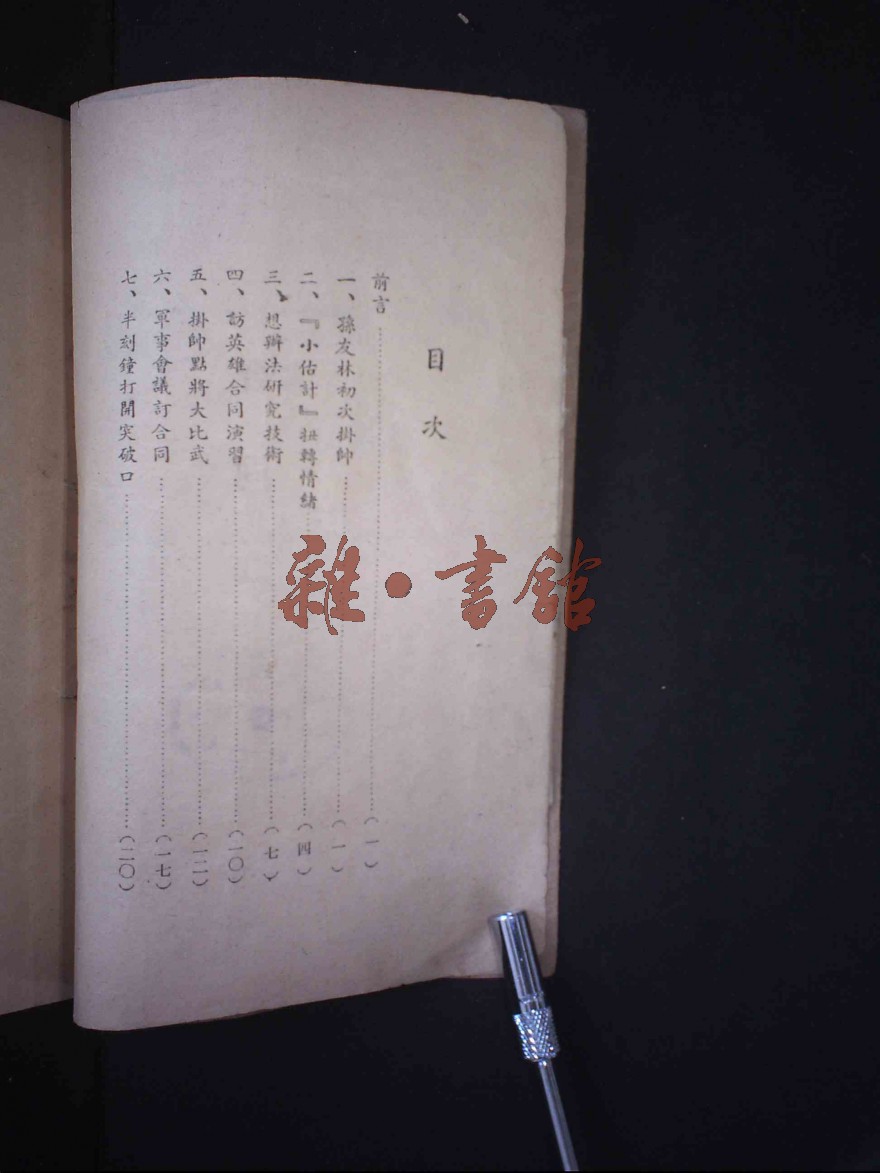 目次
前言…………(一)
一、孫友林初次掛帥…………(一)
二、『小估計』扭轉情緒…………(四)
三、想辦法研究技術…………(七)
四、訪英雄合同演習…………(一〇)
五、掛帥點將大比武…………(一二)
六、軍事會議訂合同…………(一七)
七、半刻鐘打開突破口…………(二〇)
雜·書館